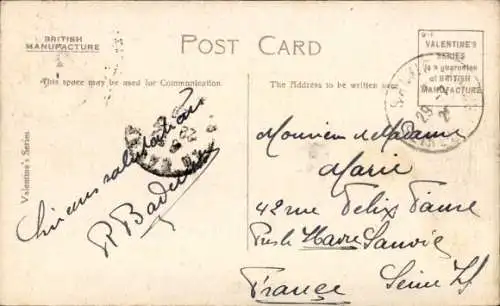 BRITISH
MANUFACTURE
POST CARD
VALENTINE'S
SERIES
is a guarantee
of BRITISH
MANUFACTURE
This space may be used for Communication.
The Address to be written
Valentine's Series
salutations
Monsieur et Madame
Marie
42 rue Felix Faure
Havre Sanvic
Seine
France